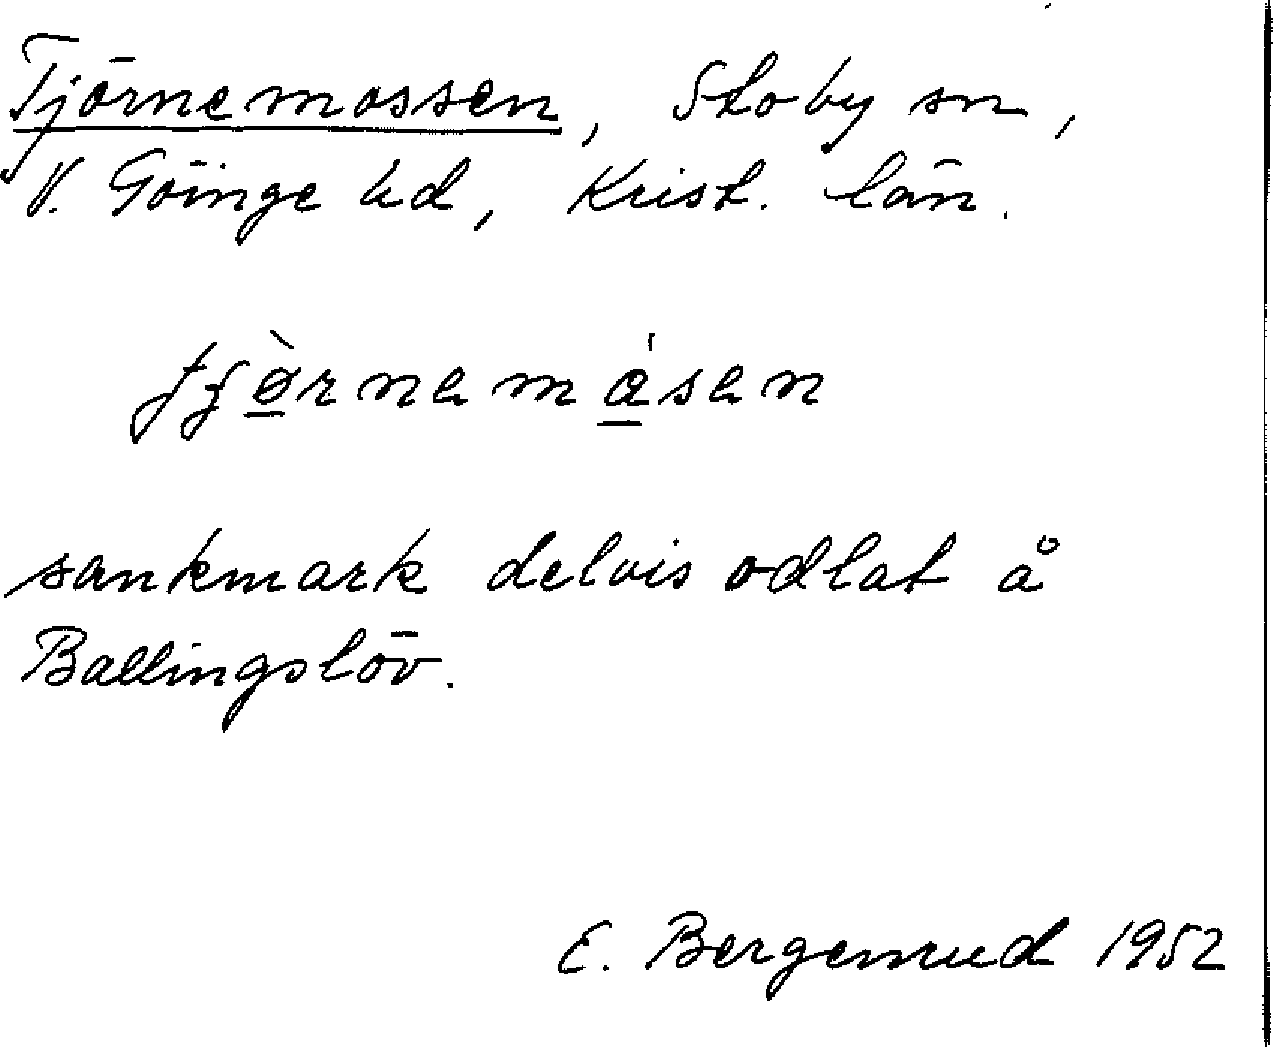 Tjörnemossen, Stoby sn,
V. Göinge hd, Krist. län.
tjø̀rnemåsen
sankmark delvis odlat å
Ballingslöv.
E. Bergenrud 1952